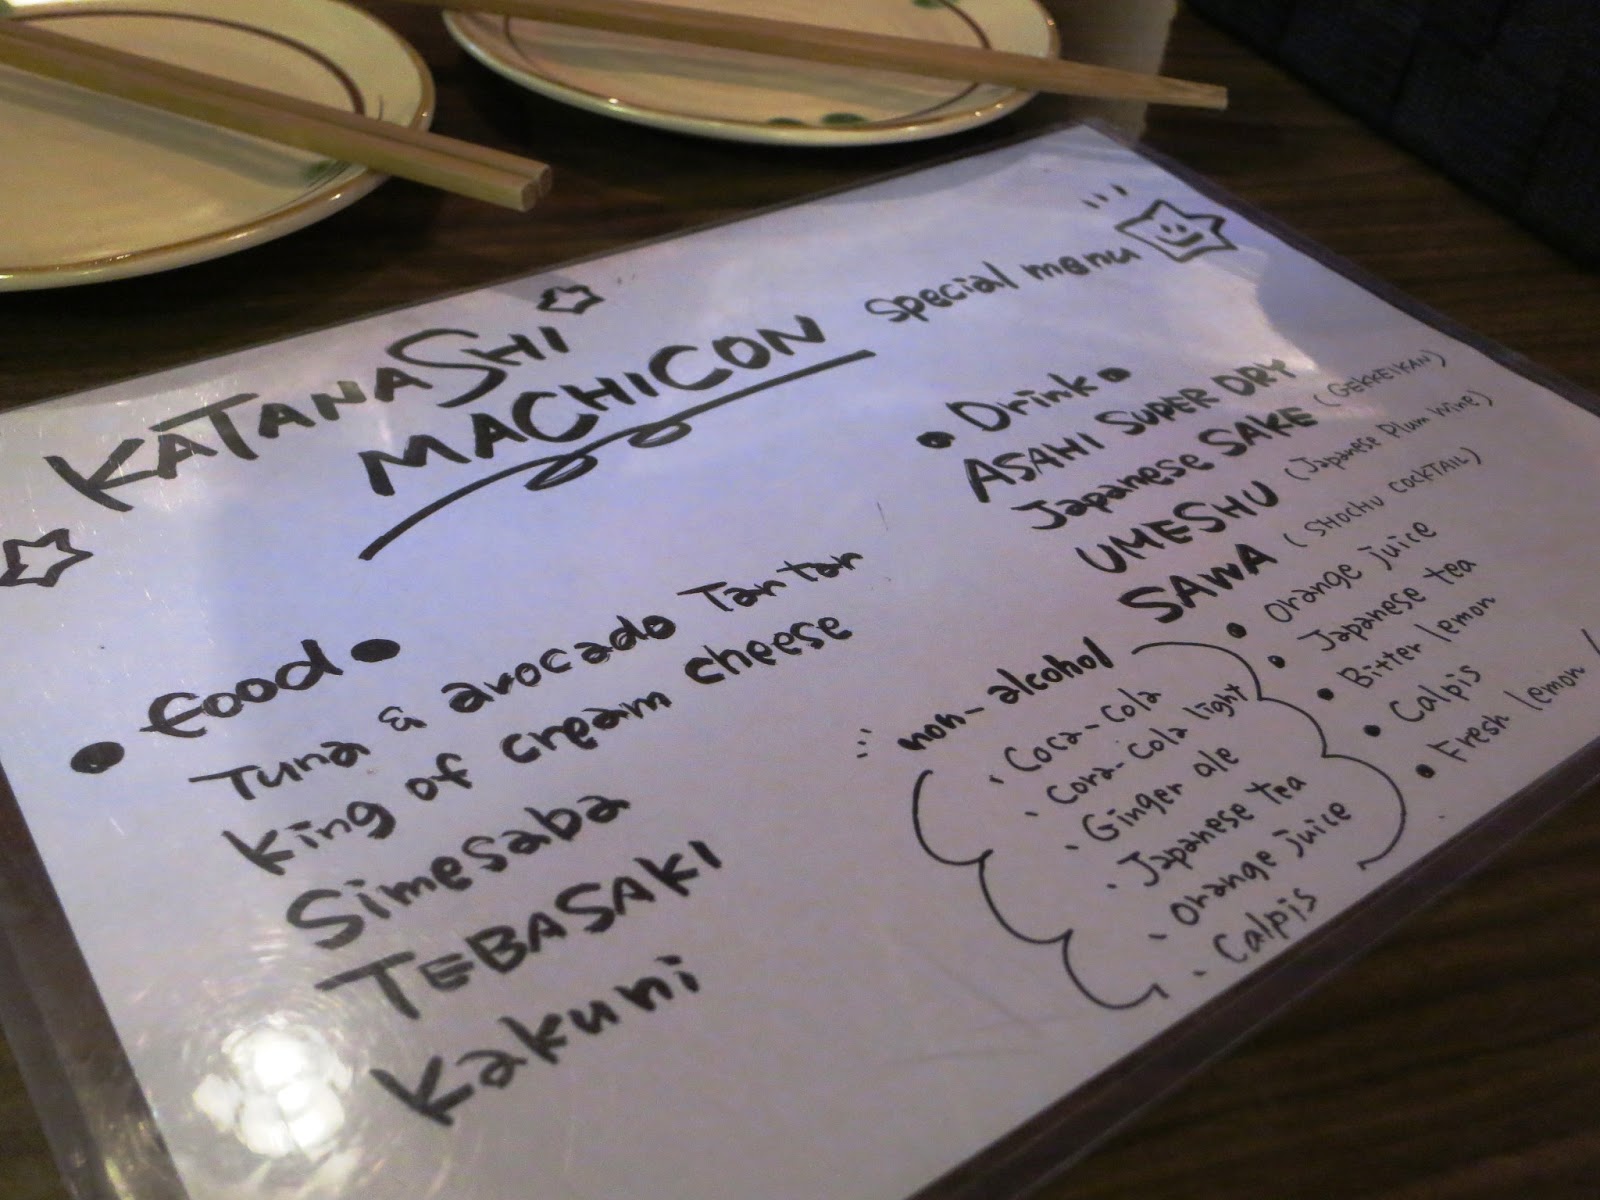 KATANASHI
MACHICON special menu
• Food •
Tuna & avocado Tartar
King of cream cheese
Simesaba
TEBASAKI
Kakuni
• Drink •
ASAHI SUPER DRY
Japanese SAKE (GEKKEIKAN)
UMESHU (Japanese Plum Wine)
SAWA (SHOCHU COCKTAIL)
• Orange juice
• Japanese tea
• Bitter lemon
• Calpis
• Fresh lemon
non-alcohol
· Coca-Cola
· Cora-Cola light
· Ginger ale
· Japanese tea
· Orange juice
· Calpis